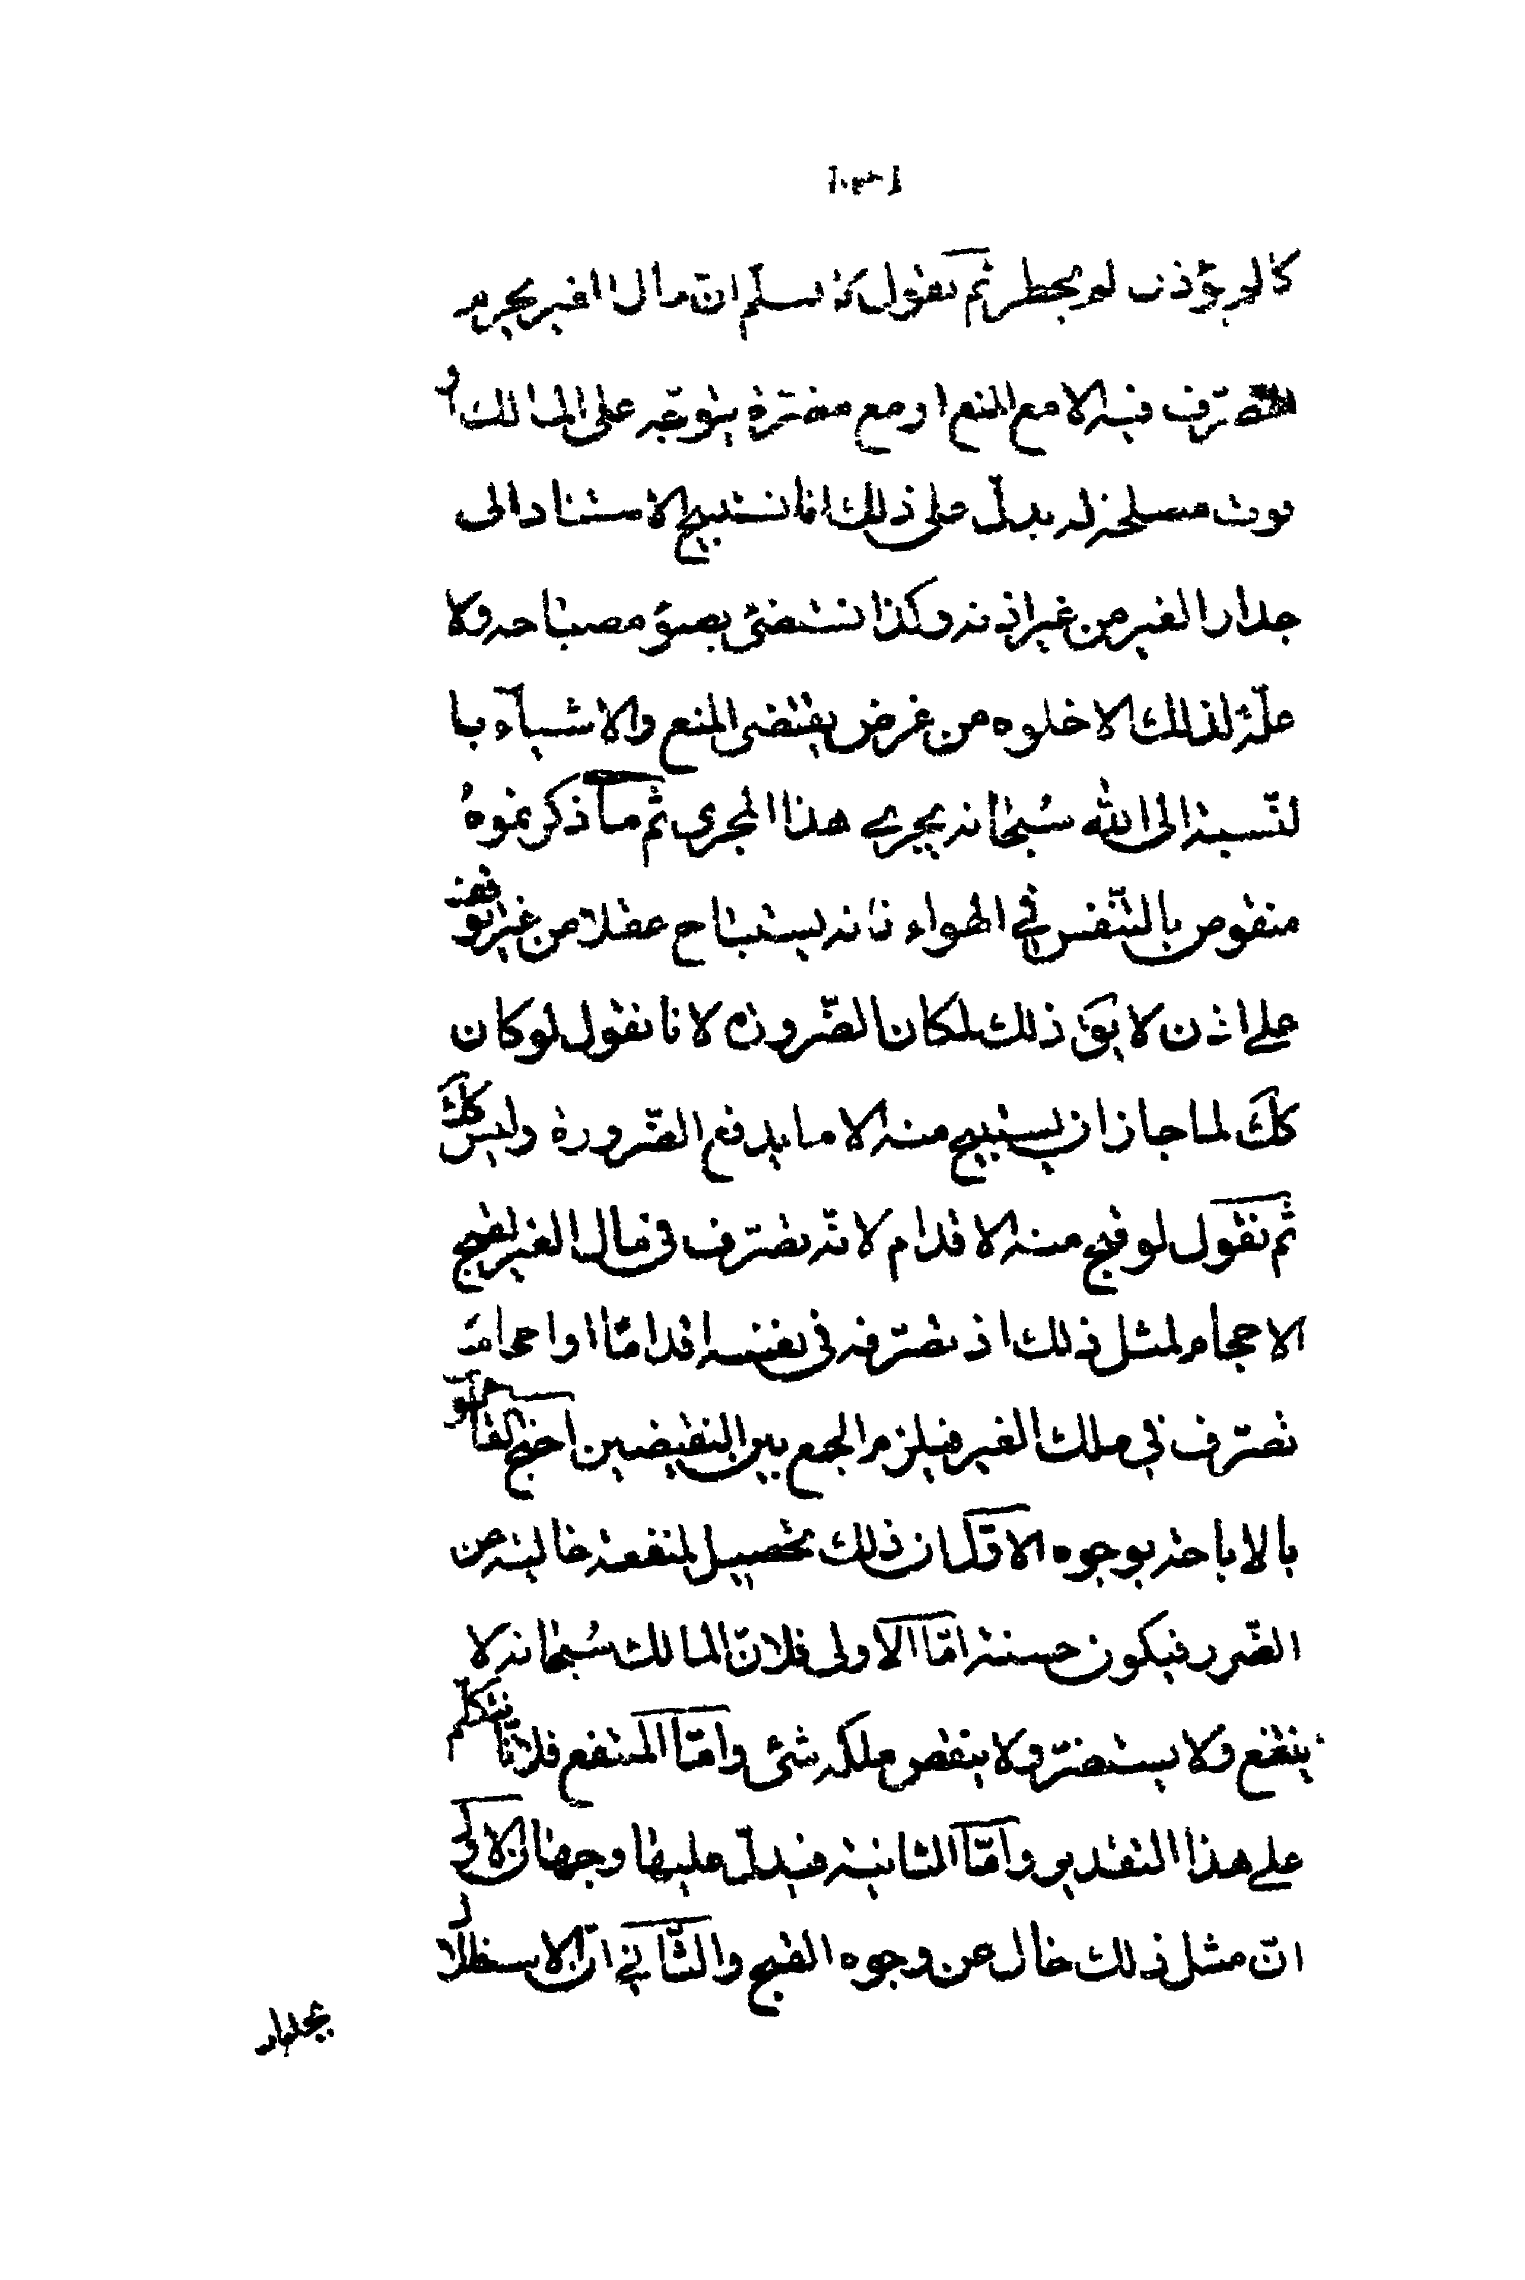 كما لم يؤذن لم يحظر ثم نقول لا نسلم ان مال الغير يحرم
التصرف فيه الا مع المنع او مع مضرة يتوجه على المالك او
فوت مصلحة له يدل على ذلك انا نستبيح الاستناد الى
جدار الغير من غير اذنه وكذا نستضئ بضوء مصباحه ولا
علة لذلك الا خلوه من غرض يقتضى المنع والاشياء با
لنسبة الى الله سبحانه يجرى هذا المجرى ثم ما ذكرتموه
منقوض بالتنفس في الهواء فانه يستباح عقلا من غير توقف
على اذن لا يق ذلك لمكان الضرورة لانا نقول لو كان
كك لما جاز ان يستبيح منه الا ما يدفع الضرورة وليس كك
ثم نقول لو قبح منه الاقدام لانه تصرف في مال الغير لقبح
الاحجام لمثل ذلك اذ تصرفه في نفسه اقداما او احجاما
تصرف في ملك الغير فيلزم الجمع بين النقيضين احتج القائلون
بالاباحة بوجوه الاول ان ذلك تحصيل لمنفعة خالية من
الضرر فيكون حسنة اما الاولى فلان المالك سبحانه لا
ينتفع ولا يستضر ولا ينقص ملكه شئ واما المنتفع فلانا نتكلم
على هذا التقدير واما الثانية فيدل عليها وجهان الاول
ان مثل ذلك خال عن وجوه القبح والثاني ان الاستظلال